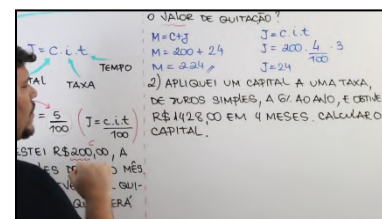 J = C.i.t
TEMPO
TAL
TAXA
= 5/100 (J = C.i.t/100)
ESTEI R$200,00, A
MÊS
QUI-
ERÁ
O VALOR DE QUITAÇÃO?
M = C+J
M = 200 + 24
M = 224
J = C.i.t
J = 200 . 4/100 . 3
J = 24
2) APLIQUEI UM CAPITAL A UMA TAXA,
DE JUROS SIMPLES, A 6% AO ANO, E OBTIVE
R$1428,00 EM 4 MESES. CALCULAR O
CAPITAL.